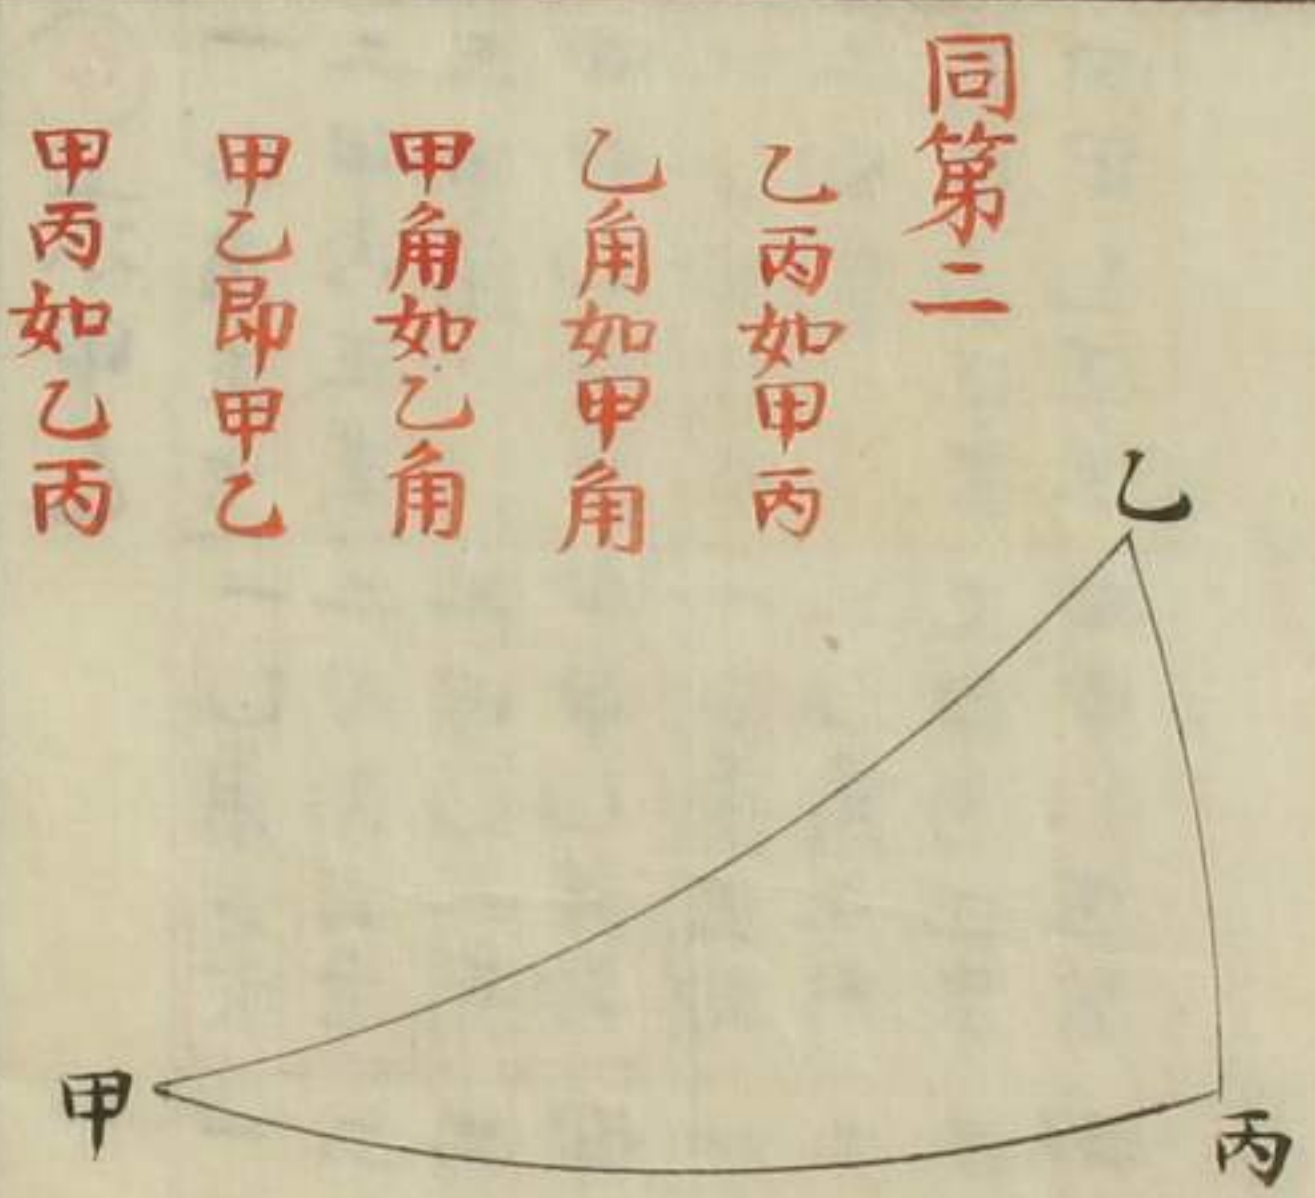 同第二
乙丙如甲丙
乙角如甲角
甲角如乙角
甲乙即甲乙
甲丙如乙丙
乙
甲
丙